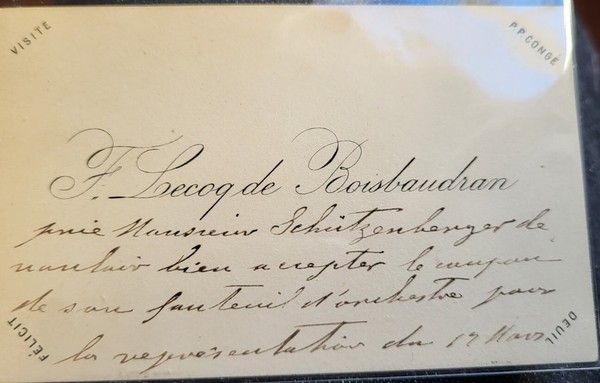 VISITE
P.P. CONGÉ
F. Lecoq de Boisbaudran
prie Monsieur Schützenberger de
vouloir bien accepter le coupon
de son fauteuil d'orchestre pour
la représentation du 17 Mars
FÉLICIT
DEUIL